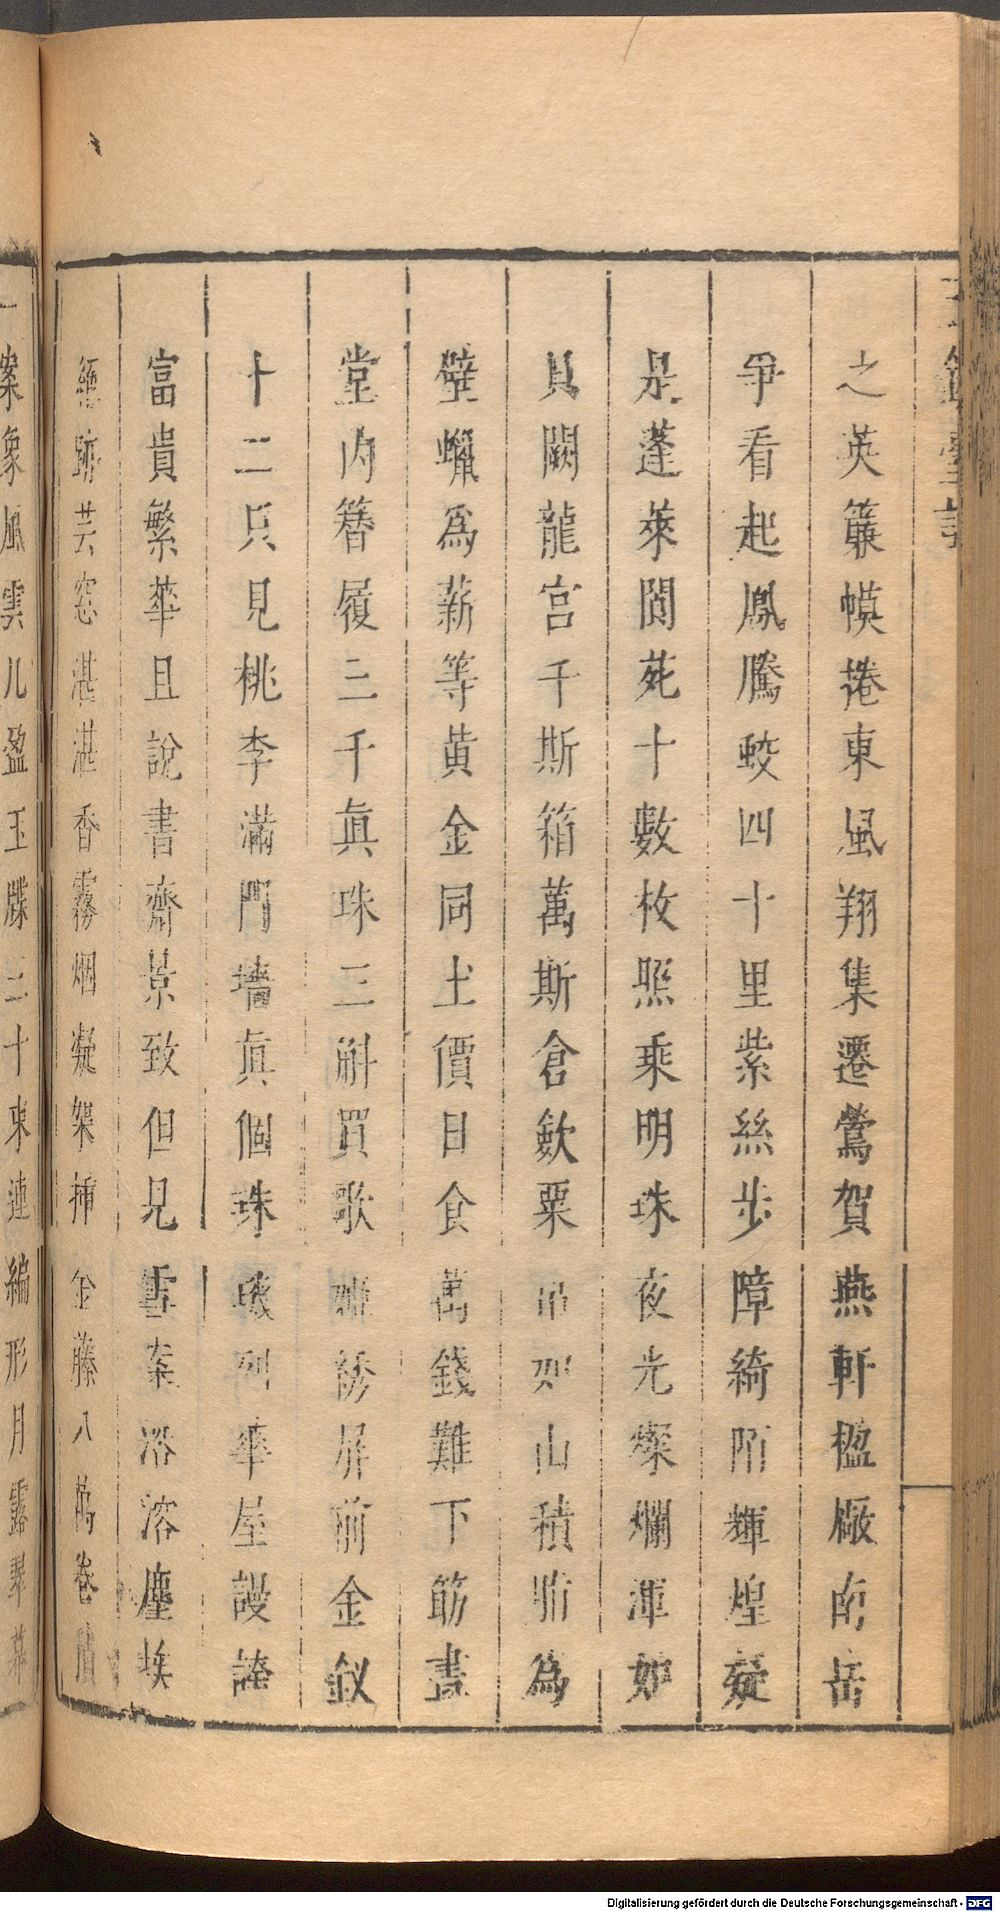 之英簾幙捲東風翔集遷鶯賀燕軒楹廠南岳
爭看起鳳騰蛟四十里紫絲步障綺陌輝煌疑
是蓬萊閬苑十數枚照乘明珠夜光燦爛渾如
貝闕龍宮千斯箱萬斯倉斂粟山積脂為
壁蠟為薪等黃金同土價日食萬錢難下筯畫
堂內簪履三千眞珠三斛買歌姬綉屏前金釵
十二只見桃李滿門墻眞個珠璣列華屋謾誇
富貴繁華且說書齋景致但見雪案溶塵埃
跡芸窓湛湛香霧烟凝架挿金藤八萬卷
案象風雲几盈玉牒三十束連編形月露翠幕
Digitalisierung gefördert durch die Deutsche Forschungsgemeinschaft - DFG